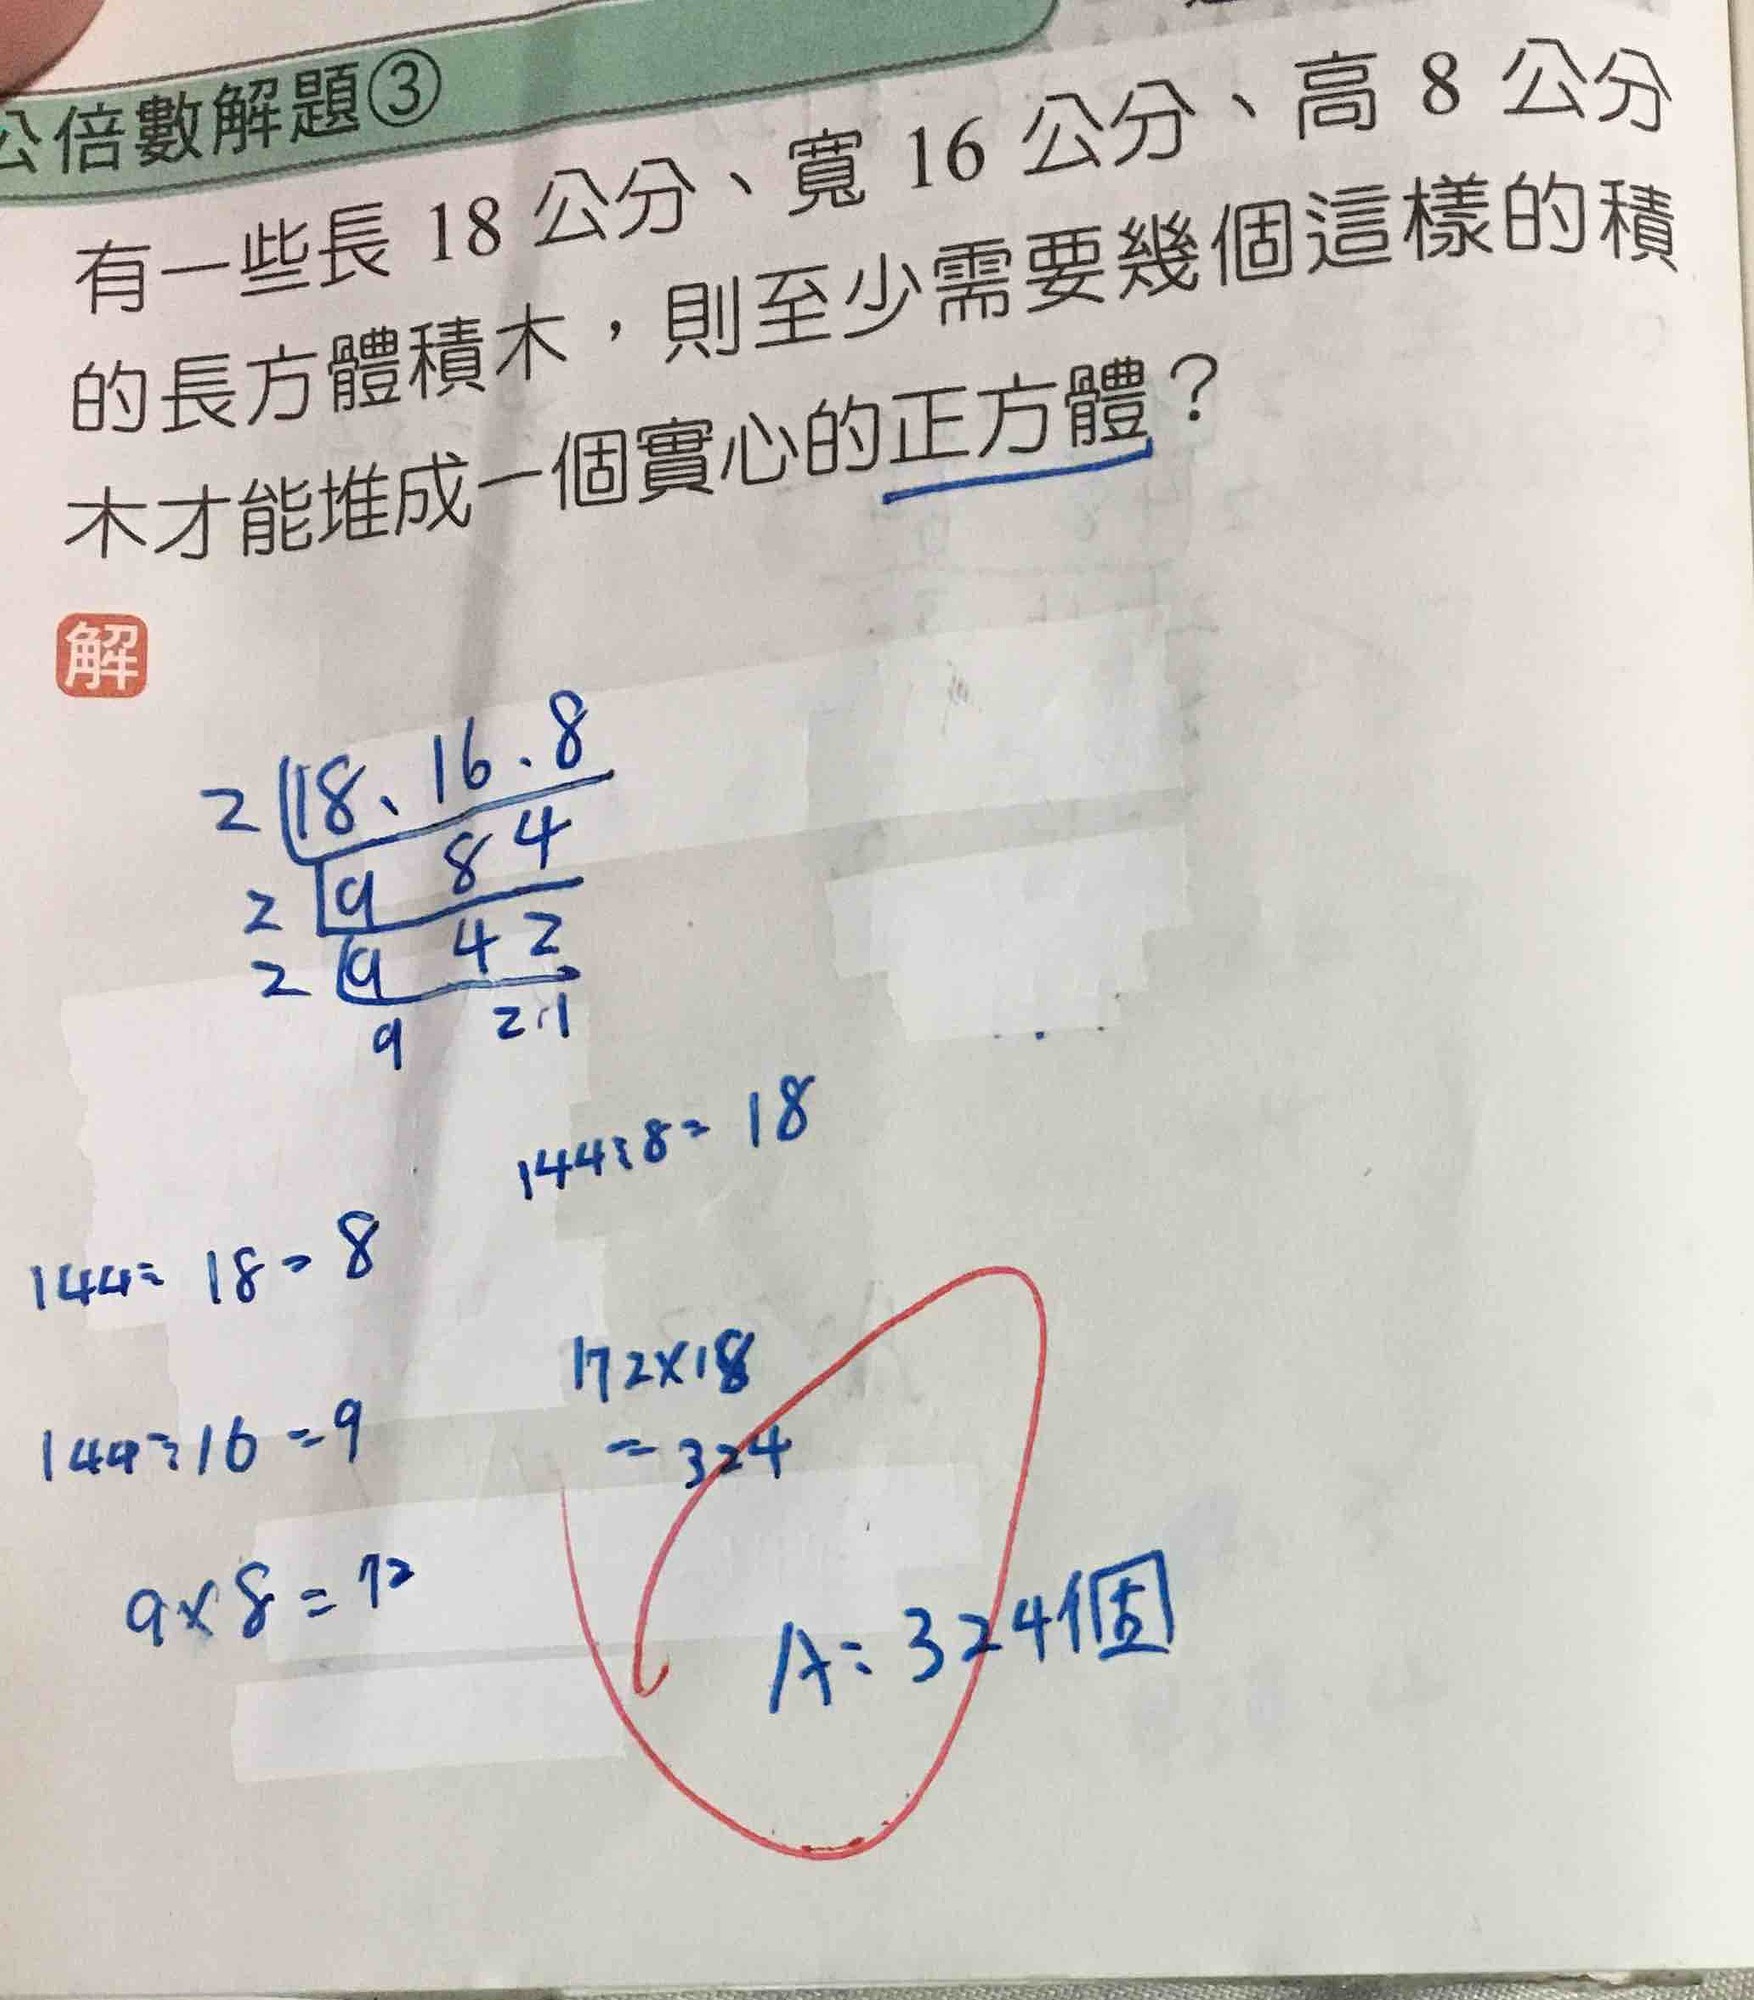 公倍數解題③
有一些長 18 公分、寬 16 公分、高 8 公分
的長方體積木，則至少需要幾個這樣的積
木才能堆成一個實心的正方體？
解
2 18、16、8
2 9 8 4
2 9 4 2
9 2 1
144÷8=18
144÷18=8
172×18
=324
144÷16=9
9×8=72
A：324個